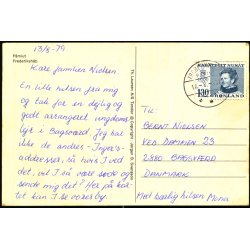 Påmiut
Frederikshåb
13/8-79
Kære familien Nielsen
En lille hilsen fra mig
og tak for en dejlig og
godt arrangeret ungdoms-
lejr i Bagsværd. Jeg har
ikke de andres - Inger's-
addresser, så hvis I ved
det, vil I så være søde og
sende mig det? Her på kortet
kan I se vores by.
KALAALLIT NUNAAT
GRØNLAND
130
BERNT NIELSEN
VED DAMMEN 23
2880 BAGSVÆRD
DANMARK
Met kærlig hilsen Mona